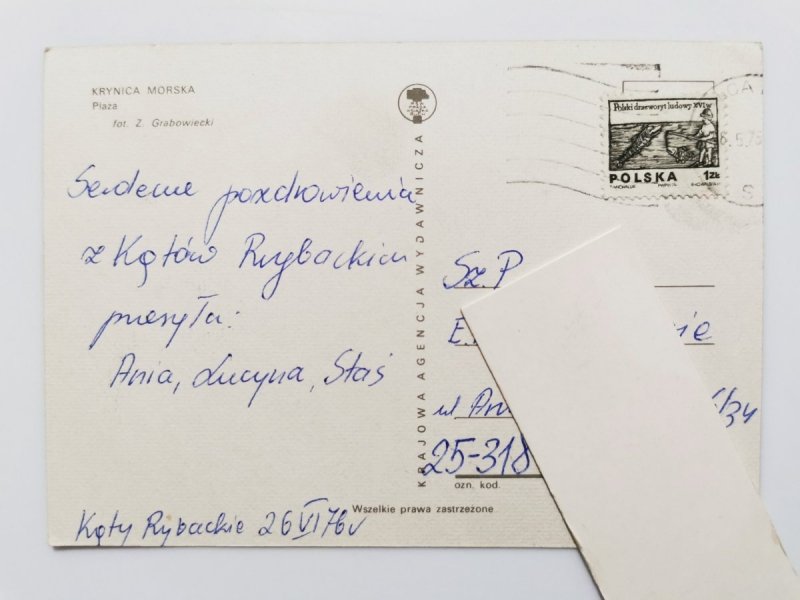 KRYNICA MORSKA
Plaża
fot. Z. Grabowiecki
Polski drzeworyt ludowy XVI w
POLSKA 1 ZŁ
Serdeczne pozdrowienia
z Kątów Rybackich
przesyła:
Ania, Lucyna, Staś
Kąty Rybackie 26 VI 76 r
KRAJOWA AGENCJA WYDAWNICZA
Sz. P
E.
ul
25-318
ozn. kod.
Wszelkie prawa zastrzeżone